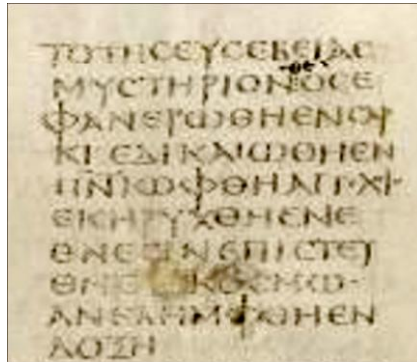 ΤΟΤΗϹΕΥϹΕΒΕΙΑϹ
θε
ΜΥϹΤΗΡΙΟΝΟϹΕ
ΦΑΝΕΡΩΘΗΕΝϹΑΡ
ΚΙΕΔΙΚΑΙΩΘΗΕΝ
ΠΝΙΩΦΘΗ
ΕΚΗΡΥΧΘΗΕΝΕ
ΘΝΕϹΙΝΕΠΙϹΤΕΥ
ΘΗΕΝΚΟϹΜΩ·
ΑΝΕΛΗΜΦΘΗΕΝ
ΔΟΞΗ